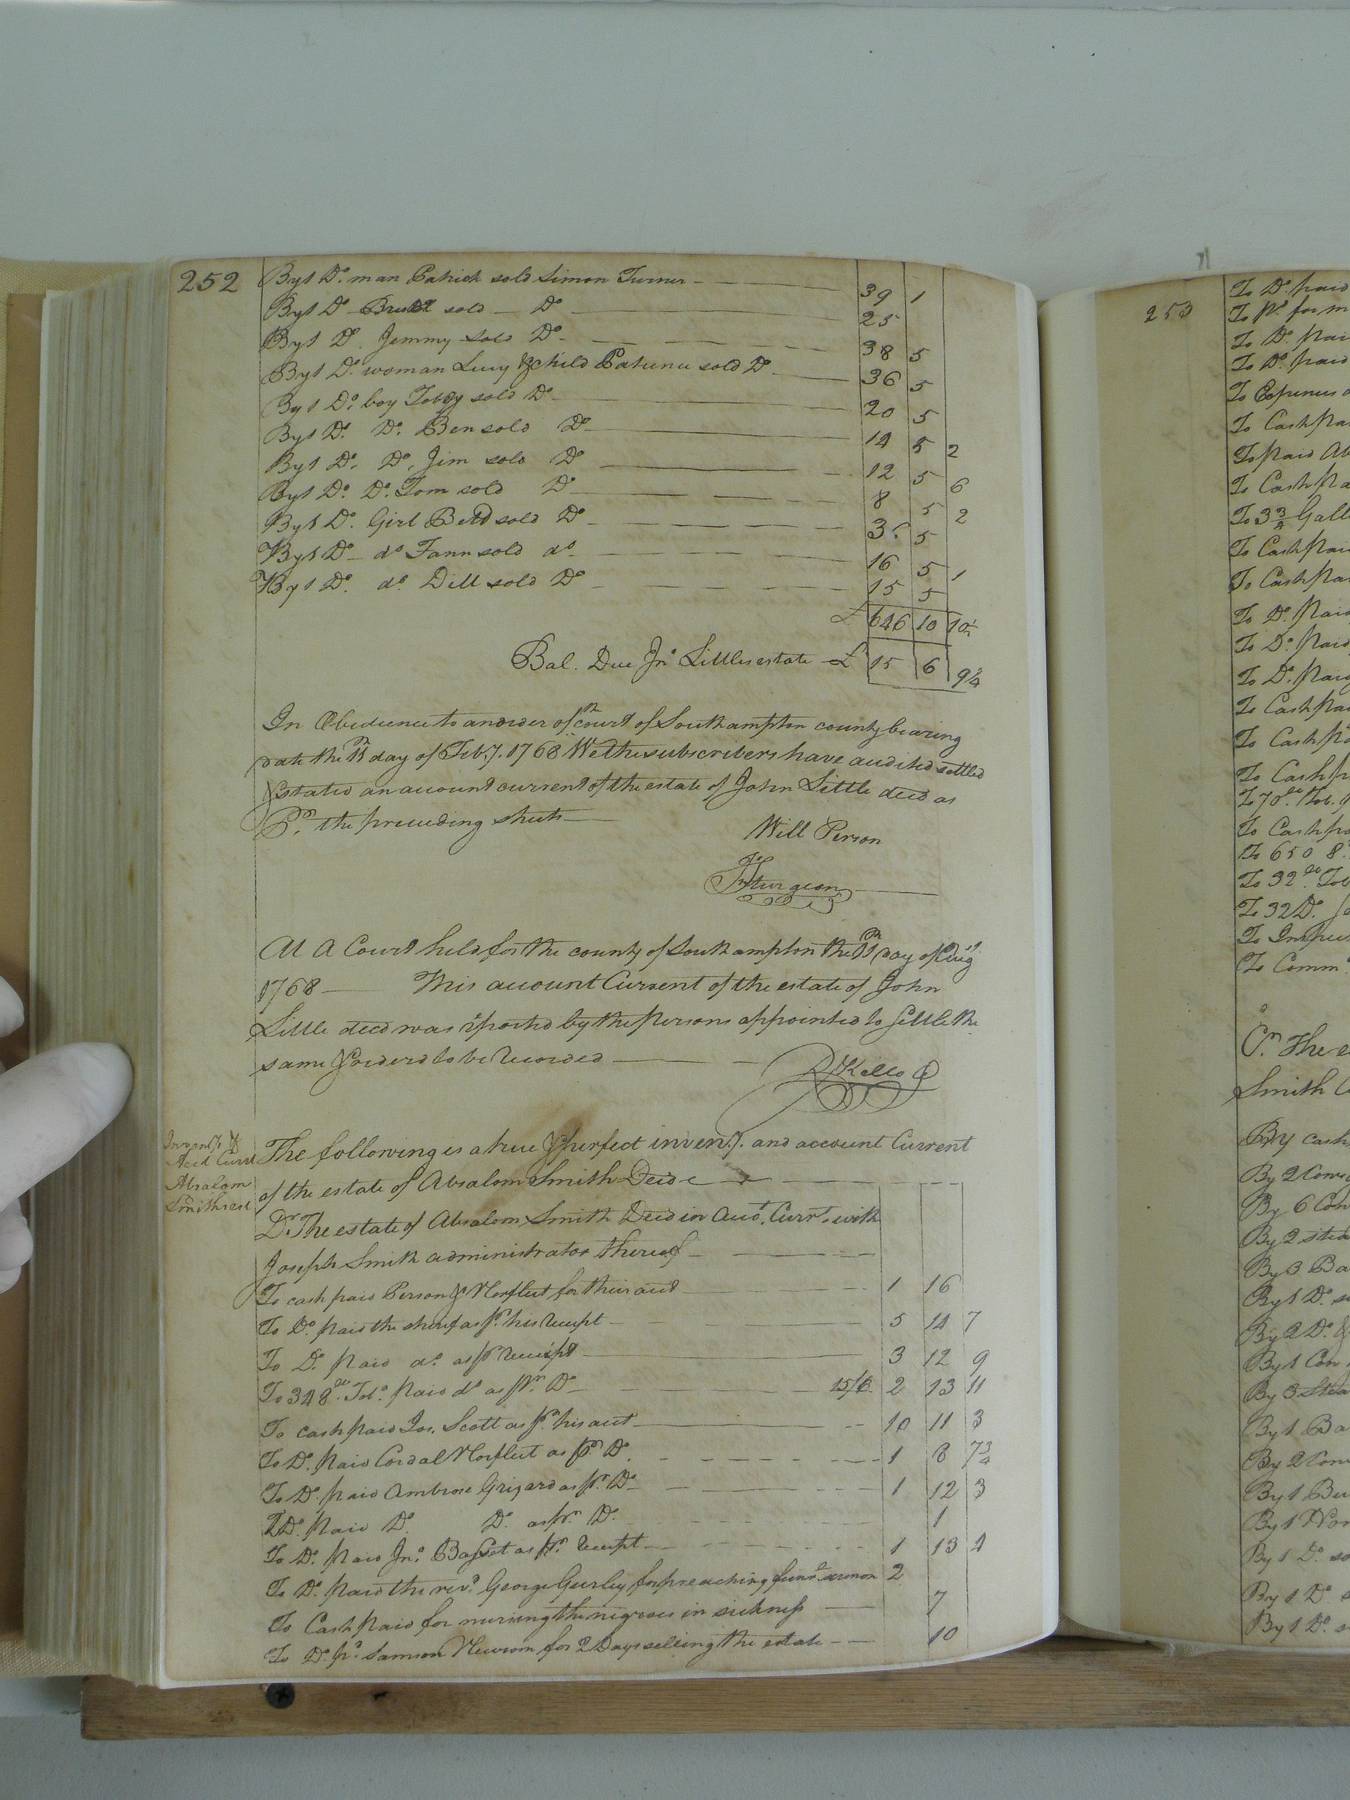 252
By 1 Do. man Patrick sold Simon Turner 39 1
By 1 Do. sold Do 25
By 1 Do. Jemmy sold Do. 38 5
By 1 Do. woman Lucy & child sold Do. 36 5
By 1 Do. boy Toby sold Do. 20 5
By 1 Do. Do. Ben sold Do. 14 5 2
By 1 Do. Do. Jim sold Do 12 5 6
By 1 Do. Do. Tom sold Do 8 5 2
By 1 Do. Girl sold Do. 5
By 1 Do do Fann sold do 16 5 1
By 1 Do. do. Dill sold Do 15 5
£ 646 10
Bal. Due Jno. Littles estate £ 15 6
In Obedience to an order of ye court of Southampton county bearing
date the day of Feby. 1768 We the subscribers have audited settled
& stated an account current of the estate of John Little decd as
Pr. the preceeding sheets
Will Person
Js Sturgeon
At A Court held for the county of Southampton the day of Augt
1768 This account Current of the estate of John
Little decd was reported by the persons appointed to settle the
same & orderd to be recorded
R Kello C
Inventy &
Acct Curt
Absalom
Smiths est
The following is a true & perfect inventy. and account Current
of the estate of Absalom Smith Decd
Dr The estate of Absalom Smith Decd in Acct. Currt. with
Joseph Smith administrator thereof
To cash paid Person & Norfleet for their acct 1 16
To Do. paid the sherif as pr. his receipt 5 14 7
To Do. paid do. as pr receipt 3 12 9
To 348 Tobo. paid do as pr. Do 15/6 2 13 11
To cash paid Jas. Scott as pr. his acct 10 11 3
To Do. paid Cordal Norfleet as pr Do. 1 8 7 3/4
To Do. paid Ambrose Grizard as pr. Do 1 12 3
To Do. paid Do. Do. as pr. Do. 1
To Do. paid Jno. Basset as pr. receipt 1 13 4
To Do. paid the revd. George Gurley for preaching funl. sermon 2
To Cash paid for nursing the negroes in sickness 7
To Do. pd. Samson Newsom for 2 Days selling the estate 10
253
To Do. paid
To
To Do. paid
To Do. paid
To Expences
To Cash
To paid
To Cash
To 3 3/4 Gall
To Cash paid
To Cash
To Do. Paid
To Do. Paid
To Do. Paid
To Cash
To Cash
To Cash
To 70
To Cash
To 650
To 32
To 32 Do.
To
To Comm
Cr. The
Smith
By cash
By 2 Cows
By 6
By 2
By 3
By 1 Do.
By 2 Do.
By 1 Cow
By 3
By 1
By 2
By 1
By 1
By 1 Do.
By 1 Do.
By 1 Do.